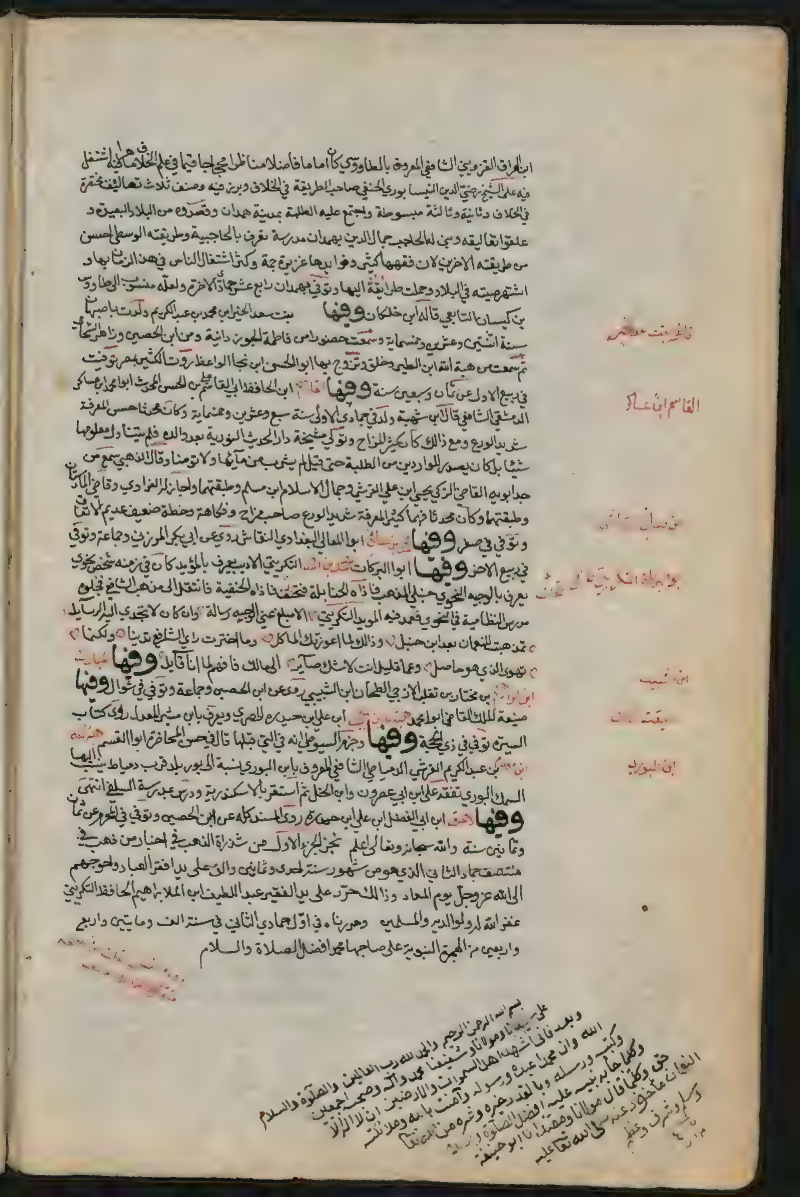 ابن العراقي القزويني الشافعي المعروف بالطاووسي كان اماما فاضلا مناظرا محجاجا قيما في علم الخلاف ماهرا فيه اشتغل
فيه على الشيخ رضي الدين النيسابوري الحنفي صاحب الطريقة في الخلاف وبرز فيه وصنف ثلاث تعاليق مختصرة
في الخلاف وثانية وثالثة مبسوطة واجتمع عليه الطلبة بمدينة همدان وقصدوه من البلاد البعيدة و
علقوا تعاليقه وبنى له الحاجب جمال الدين بهمدان مدرسة تعرف بالحاجبية وطريقته الوسطى احسن
من طريقته الاخريين لان فقهها كثير وفوايدها غزيرة جمة وكثر اشتغال الناس في هذا الزمان بها و
اشتهر صيته في البلاد وحملت طرايقه اليها وتوفي بهمدان رابع عشر جمادى الاخرة ولعله منسوب الى طاووس
بن كيسان التابعي قاله ابن خلكان وفيها بنت سعد الخير ابن محمد بن عبد الكريم ولدت باصبهان
سنة اثنتين وعشرين وخمسماية وسمعت حضورا من فاطمة الجوزدانية ومن ابن الحصين وزاهر الشحامي
ثم سمعت من هبة الله ابن الطبر وخلق وتزوج بها ابو الحسن ابن نجا الواعظ روت الكثير بمصر توفيت
في ربيع الاول عن ثمان وسبعين سنة وفيها القاسم ابن الحافظ ابي القاسم علي بن الحسن المحدث ابو محمد ابن عساكر
الدمشقي الشافعي قال ابن شهبة ولد في جمادى الاولى سنة سبع وعشرين وخمسماية وكان محدثا حسن المعرفة
شديد الورع ومع ذالك كان كثير المزاح وتولى مشيخة دار الحديث النورية بعد والده فلم يتناول من معلومها
شيئا بل كان يصرفه للواردين من الطلبة حتى قيل لم يشرب من مآئها ولا توضا وقال الذهبي سمع من
جد ابويه القاضي الزكي يحيى ابن علي القرشي وجمال الاسلام ابن مسلم وطبقتهما واجاز له الفراوي وقاضي المارستان
وطبقتهما وكان محدثا فهما كثير المعرفة شديد الورع صاحب مزاح وفكاهة وخطه ضعيف عديم الاتقان
وتوفي في صفر وفيها ابو المعالي البغدادي النقاش روى عن ابي بكر المزرفي وجماعة وتوفي
في ربيع الاخر وفيها ابو البركات التكريتي الاديب يعرف بالمؤيد كان في زمنه شخص نحوي
يعرف بالوجيه النحوي حنبلي المذهب فاذاه الحنابلة فتحنف فاذاه الحنفية فانتقل الى مذهب الشافعي فجعلوه
مدرس النظامية في النحو فعمل فيه المويد التكريتي الا مبلغ عني الوجيه رسالة وان كان لا تجدي اليه الرسايل
تمذهبت للنعمان بعد ابن حنبل وذالك لما اعوزتك المآكل وما اخترت راي الشافعي تدينا ولكنما
تهوى الذي هو حاصل وعما قليل انت لا شك صاير الى مالك فافهم لما انا قايل وفيها
بن مختار بن تغلب الازجي الطحان ابن الشبيبي روى عن ابن الحصين وجماعة وتوفي في شوال وفيها
صنيعة الملك القاضي ابو محمد ابن علي بن حيدرة المصري ويعرف بابن ميسر المعدل راوي كتاب
السيرة توفي في ذي الحجة وفيها وجزم السيوطي انه في التي قبلها قال في حسن المحاضرة ابو القسم
بن عبد الكريم القرشي الدمياطي الشافعي المعروف بابن البوري نسبة الى بور بلد قرب دمياط ينسب اليها
السمك البوري تفقه على ابن ابي عصرون وابن الخل ثم استقر بالاسكندرية ودرس بمدرسة السلفي انتهى
وفيها ابن ابي الفضل ابن علي ابن حيدرة روى المسند كله عن ابن الحصين وتوفي في المحرم عن ثمان
وثمانين سنة والله سبحانه وتعالى اعلم نجز الجزء الاول من شذرات الذهب في اخبار من ذهب في
منتصف جماد الثاني الذي هو من شهور سنة احدى وثمانين والف على يد افقر العباد واحوجهم
الى الله عز وجل يوم المعاد وذالك حرر على يد الفقير عبد اللطيف ابن الملا ابراهيم الحافظ التكريتي
غفر الله له ولوالديه والمسلمين وحررناه في اول جمادي الثاني في سنة الف ومايتين واربع
واربعين من الهجرة النبوية على صاحبها محمد افضل الصلاة والسلام
القاسم ابن عساكر
ابن البوري
بسم الله الرحمن الرحيم والحمد لله رب العالمين والصلوة والسلام
على سيدنا ومولانا وشفيعنا محمد وآله وصحبه اجمعين
وبعد فاني اشهد اهل السموات والارضين ان لا اله الا
الله وان محمدا عبده ورسوله وآمنت بالله وملائكته
وكتبه ورسله وبالقدر خيره وشره من الله تعالى
وكلما جاء به نبيه عليه افضل الصلوة
حق وكلما قال مولانا ومقتدانا ابو حنيفة
النعمان مأخوذ عنه صلى الله تعالى عليه
وسلم وشرف وعظم